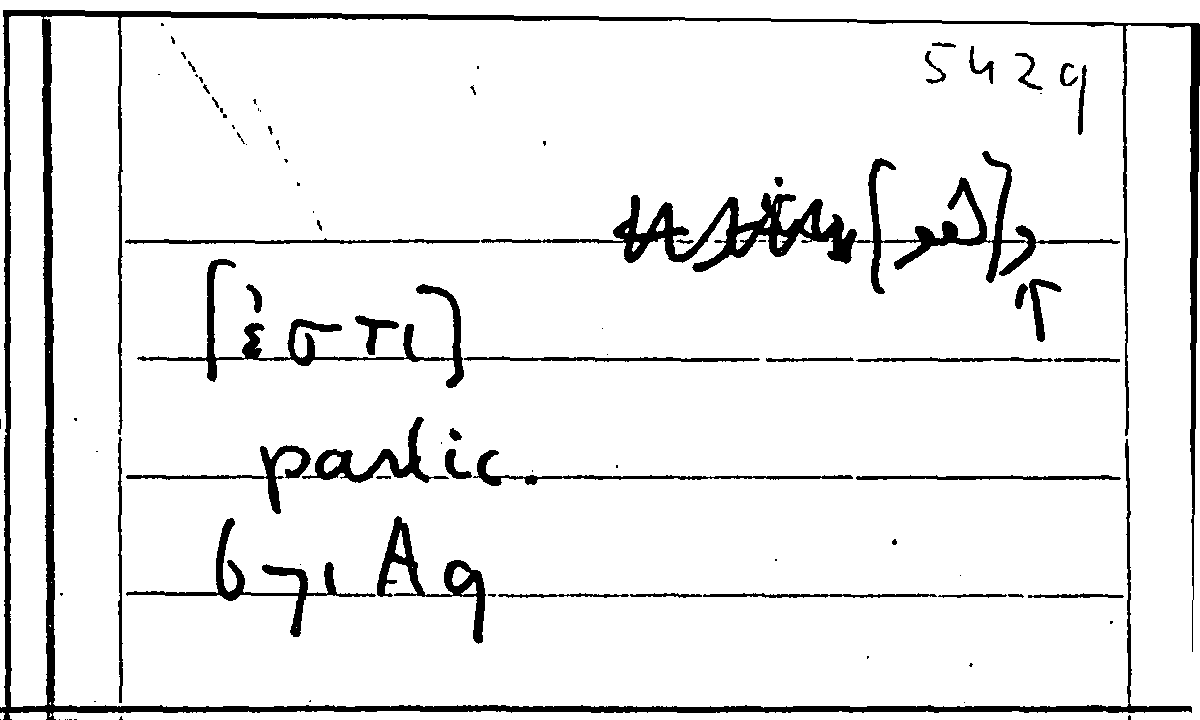 5429
[ἐστι]
partic.
671 A9